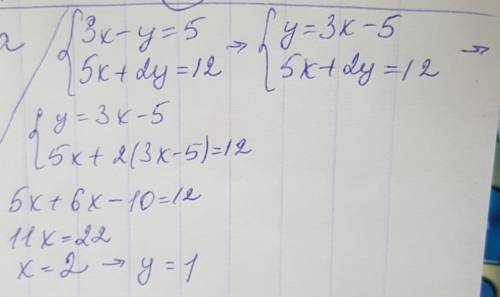 a) { 3x - y = 5 → { y = 3x - 5
{ 5x + 2y = 12 { 5x + 2y = 12 →
{ y = 3x - 5
{ 5x + 2(3x - 5) = 12
5x + 6x - 10 = 12
11x = 22
x = 2 → y = 1